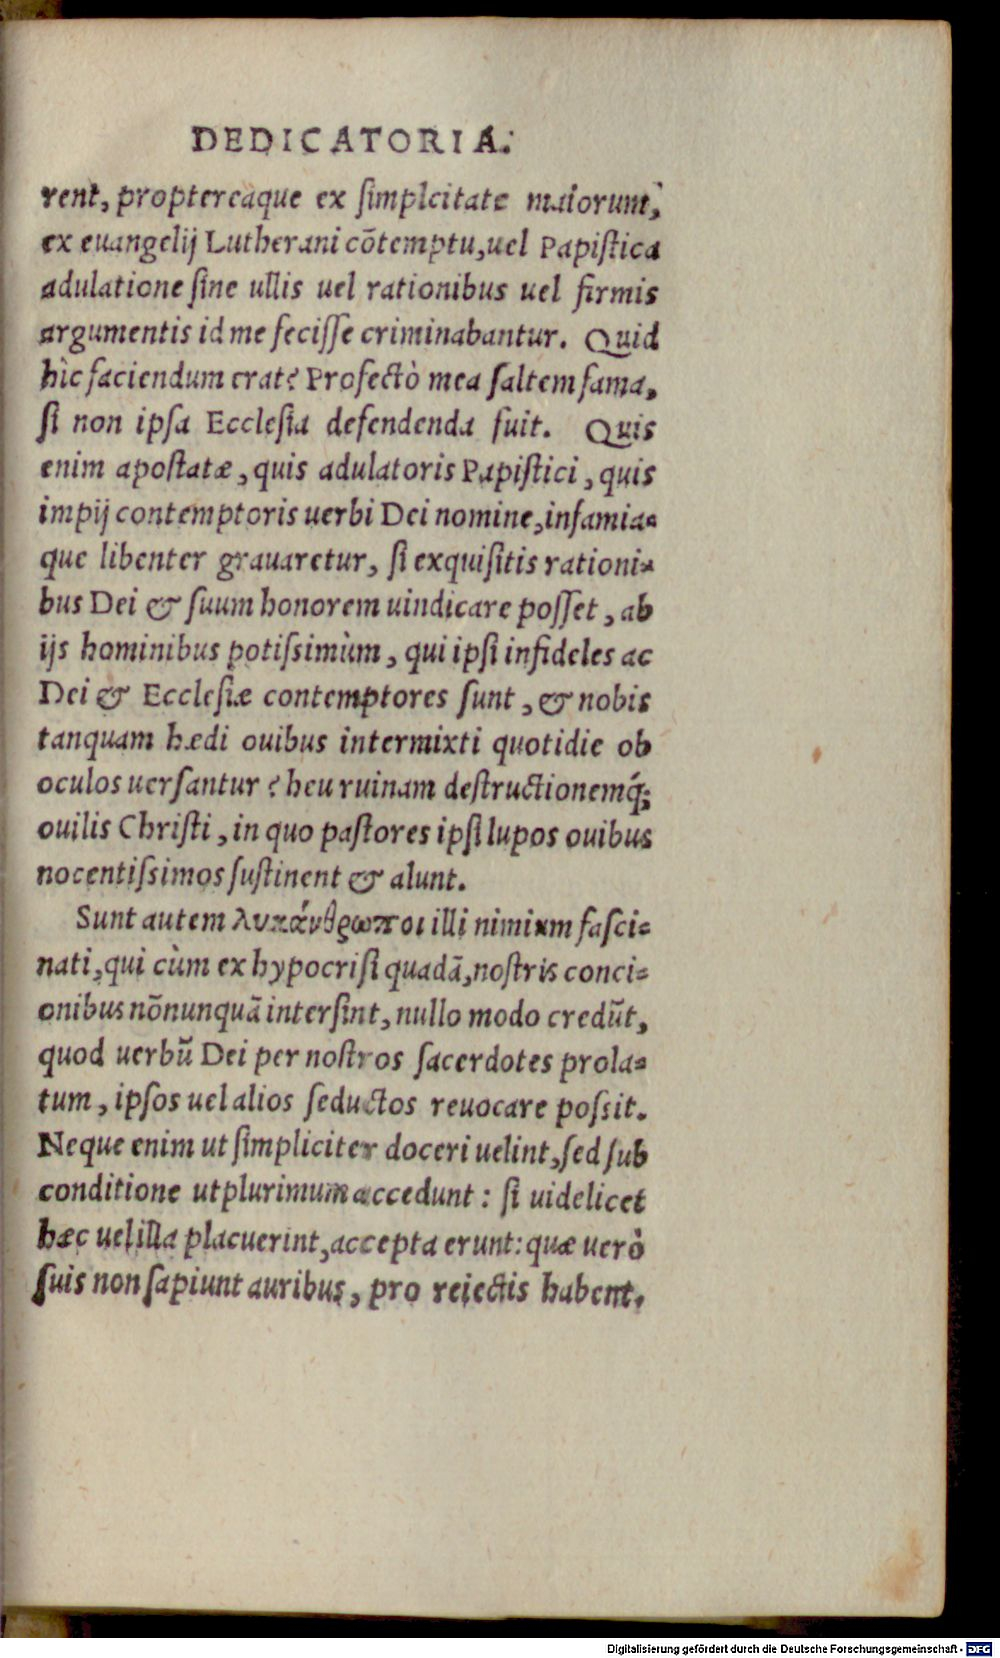 DEDICATORIA.
rent, proptereaque ex simplcitate maiorum,
ex euangelij Lutherani cõtemptu, uel Papistica
adulatione sine ullis uel rationibus uel firmis
argumentis id me fecisse criminabantur. Quid
hìc faciendum erat? Profectò mea saltem fama,
si non ipsa Ecclesia defendenda fuit. Quis
enim apostatæ, quis adulatoris Papistici, quis
impij contemptoris uerbi Dei nomine, infamia-
que libenter grauaretur, si exquisitis rationi-
bus Dei & suum honorem uindicare posset, ab
ijs hominibus potissimùm, qui ipsi infideles ac
Dei & Ecclesiæ contemptores sunt, & nobis
tanquam hædi ouibus intermixti quotidie ob
oculos uersantur? heu ruinam destructionemq́;
ouilis Christi, in quo pastores ipsi lupos ouibus
nocentissimos sustinent & alunt.
Sunt autem λυκάνθρωποι illi nimium fasci-
nati, qui cùm ex hypocrisi quadã, nostris conci-
onibus nõnunquã intersint, nullo modo credũt,
quod uerbũ Dei per nostros sacerdotes prola-
tum, ipsos uel alios seductos reuocare possit.
Neque enim ut simpliciter doceri uelint, sed sub
conditione utplurimum accedunt: si uidelicet
hæc uel illa placuerint, accepta erunt: quæ uerò
suis non sapiunt auribus, pro reiectis habent.
Digitalisierung gefördert durch die Deutsche Forschungsgemeinschaft - DFG